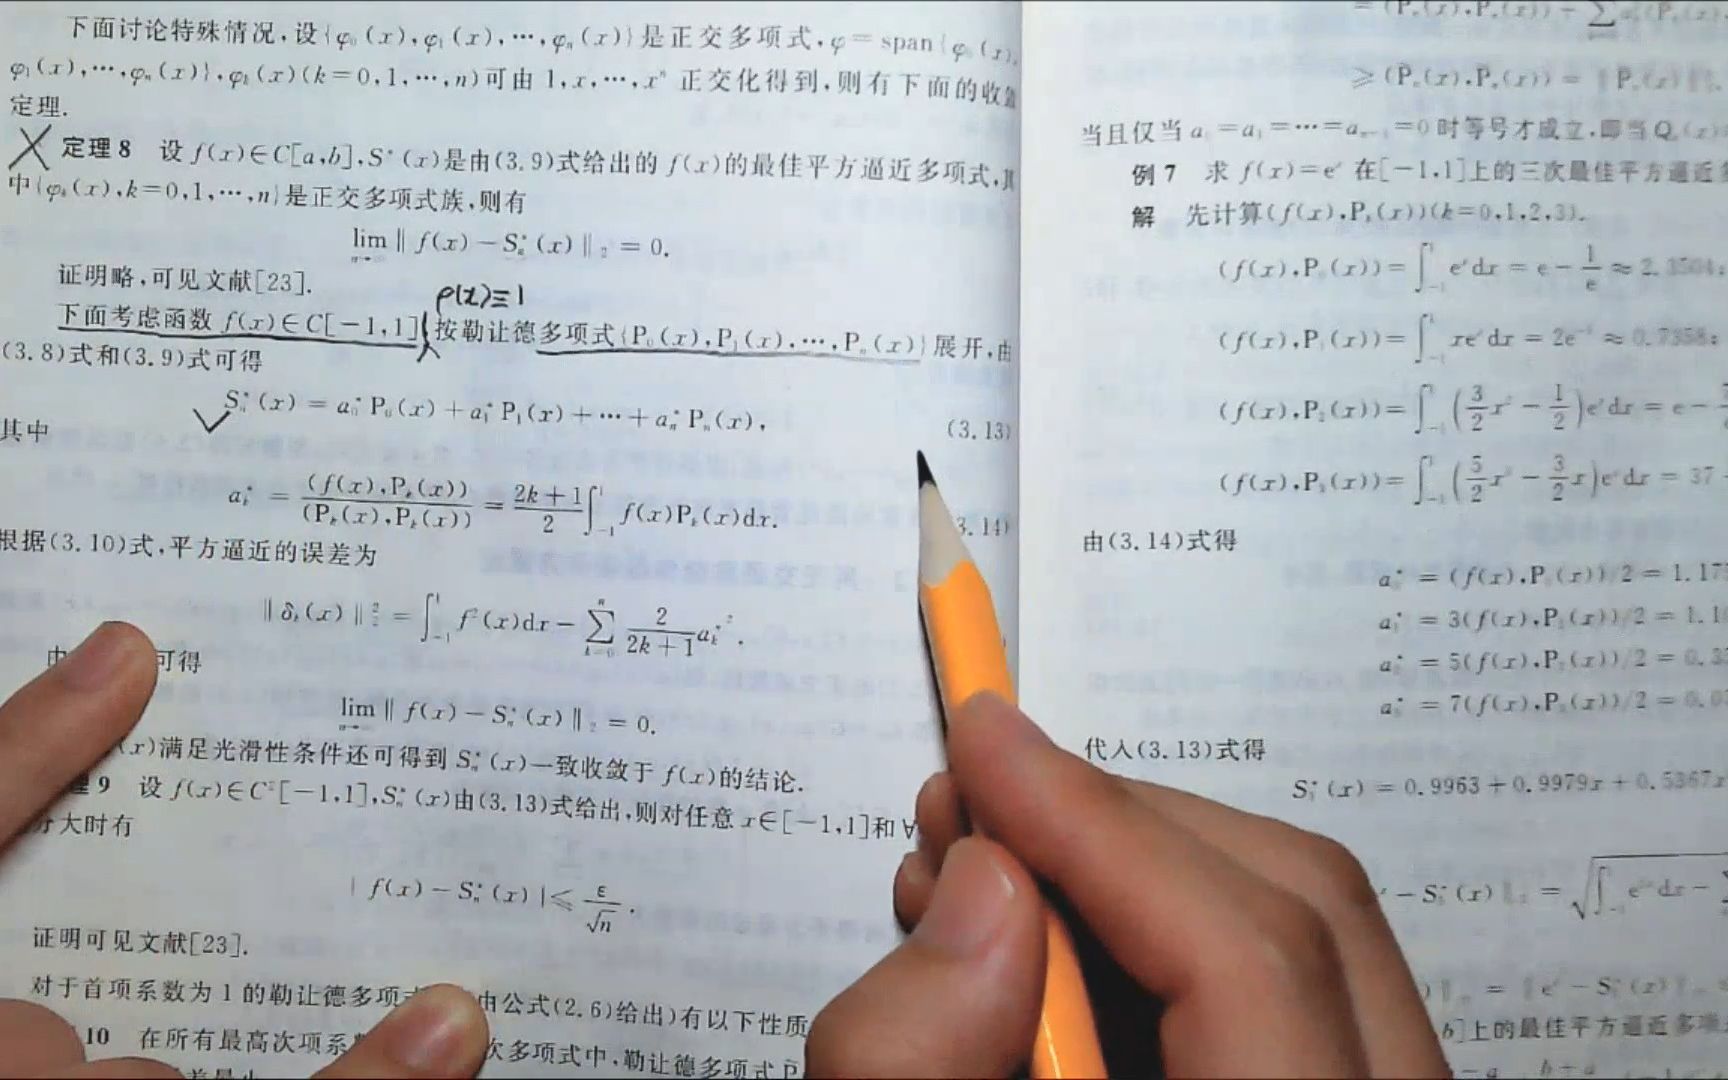 下面讨论特殊情况,设{φ₀(x),φ₁(x),⋯,φₙ(x)}是正交多项式,φ=span{φ₀(x),
φ₁(x),⋯,φₙ(x)},φₖ(x)(k=0,1,⋯,n)可由 1,x,⋯,xⁿ 正交化得到,则有下面的收敛
定理.
定理8 设 f(x)∈C[a,b],S*(x)是由(3.9)式给出的 f(x)的最佳平方逼近多项式,其
中{φₖ(x),k=0,1,⋯,n}是正交多项式族,则有
lim n→∞ ‖f(x)-Sₙ*(x)‖₂=0.
证明略,可见文献[23].
ρ(x)≡1
下面考虑函数 f(x)∈C[-1,1]按勒让德多项式{P₀(x),P₁(x),⋯,Pₙ(x)}展开,由
(3.8)式和(3.9)式可得
Sₙ*(x)=a₀*P₀(x)+a₁*P₁(x)+⋯+aₙ*Pₙ(x), (3.13)
其中
aₖ*=(f(x),Pₖ(x))/(Pₖ(x),Pₖ(x))=(2k+1)/2 ∫₋₁¹ f(x)Pₖ(x)dx. 3.14)
根据(3.10)式,平方逼近的误差为
‖δₙ(x)‖₂²=∫₋₁¹ f²(x)dx-∑ₖ₌₀ⁿ 2/(2k+1) aₖ*².
由 可得
lim n→∞ ‖f(x)-Sₙ*(x)‖₂=0.
(x)满足光滑性条件还可得到 Sₙ*(x)一致收敛于 f(x)的结论.
理9 设 f(x)∈C²[-1,1],Sₙ*(x)由(3.13)式给出,则对任意 x∈[-1,1]和∀
分大时有
|f(x)-Sₙ*(x)|≤ε/√n.
证明可见文献[23].
对于首项系数为 1 的勒让德多项式 由公式(2.6)给出)有以下性质
10 在所有最高次项系数 次多项式中,勒让德多项式 P̃
=(Pₙ(x),Pₙ(x))+∑
≥(Pₙ(x),Pₙ(x))=‖Pₙ(x)‖₂².
当且仅当 a₀=a₁=⋯=aₙ₋₁=0时等号才成立,即当 Qₙ(x)
例7 求 f(x)=eˣ 在[-1,1]上的三次最佳平方逼近多
解 先计算(f(x),Pₖ(x))(k=0,1,2,3).
(f(x),P₀(x))=∫₋₁¹ eˣdx=e-1/e≈2.3504;
(f(x),P₁(x))=∫₋₁¹ xeˣdx=2e⁻¹≈0.7358;
(f(x),P₂(x))=∫₋₁¹ (3/2 x²-1/2)eˣdx=e-
(f(x),P₃(x))=∫₋₁¹ (5/2 x³-3/2 x)eˣdx=37
由(3.14)式得
a₀*=(f(x),P₀(x))/2=1.175
a₁*=3(f(x),P₁(x))/2=1.10
a₂*=5(f(x),P₂(x))/2=0.35
a₃*=7(f(x),P₃(x))/2=0.0
代入(3.13)式得
S₃*(x)=0.9963+0.9979x+0.5367x
-S₃*(x)‖₂=√∫₋₁¹ e²ˣdx-
=‖eˣ-S₃*(x)‖
b]上的最佳平方逼近多项